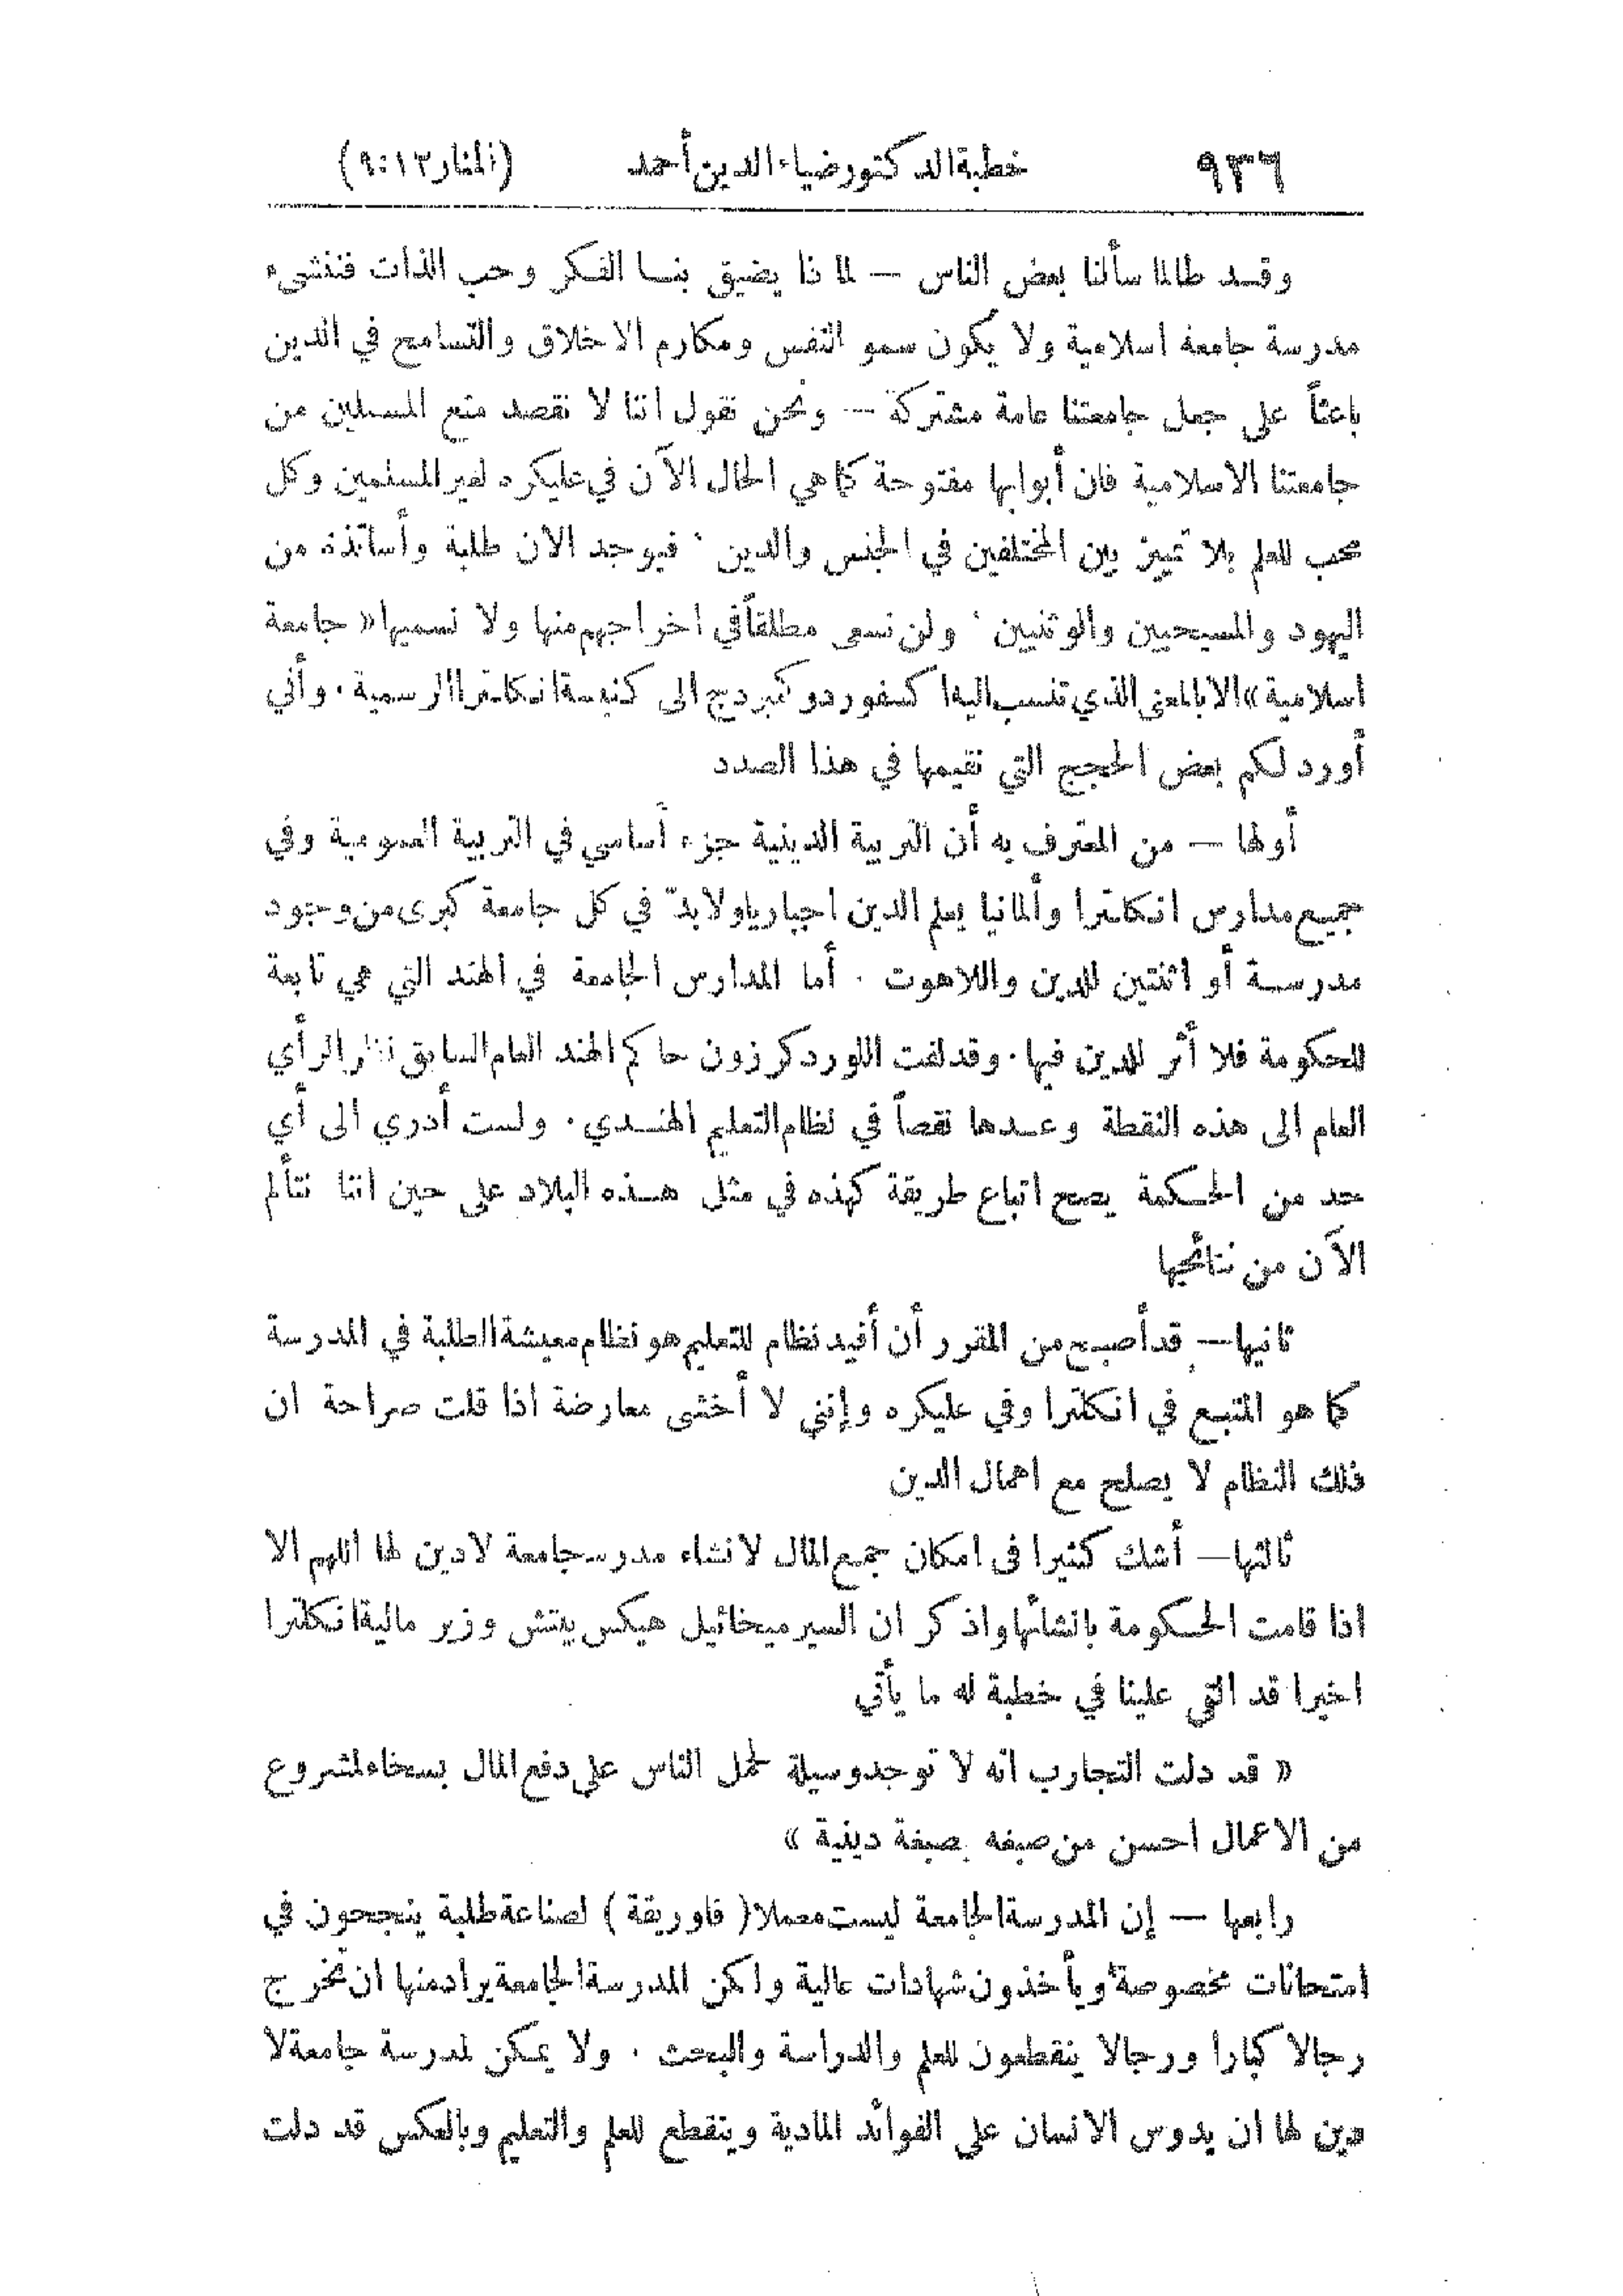 ٩٣٦ خطبة الدكتور ضياء الدين أحمد (المنار ١٢:٩)
وقد طالما سألنا بعض الناس — لماذا يضيق بنا الفكر وحب الذات فننشىء
مدرسة جامعة اسلامية ولا يكون سمو النفس ومكارم الاخلاق والتسامح في الدين
باعثاً على جعل جامعتنا عامة مشتركة — ونحن نقول اننا لا نقصد منع المسلمين من
جامعتنا الاسلامية فان أبوابها مفتوحة كما هي الحال الآن في عليكره لغير المسلمين وكل
محب للعلم بلا تمييز بين المختلفين في الجنس والدين ، فيوجد الآن طلبة وأساتذة من
اليهود والمسيحيين والوثنيين ، ولن نسعى مطلقاً في اخراجهم منها ولا نسميها « جامعة
اسلامية » الا بالمعنى الذي تنسب اليه اكسفورد وكمبردج الى كنيسة انكلترا الرسمية . وأني
أورد لكم بعض الحجج التي نقيمها في هذا الصدد
أولها — من المعترف به أن التربية الدينية جزء أساسي في التربية العمومية وفي
جميع مدارس انكلترا وألمانيا يعلم الدين اجباريا ولا بدّ في كل جامعة كبرى من وجود
مدرسة أو اثنتين للدين واللاهوت . أما المدارس الجامعة في الهند التي هي تابعة
للحكومة فلا أثر للدين فيها . وقد لفت اللورد كرزون حاكم الهند العام السابق نظر الرأي
العام الى هذه النقطة وعدها نقصاً في نظام التعليم الهندي . ولست أدري الى أي
حد من الحكمة يصح اتباع طريقة كهذه في مثل هذه البلاد على حين اننا نتألم
الآن من نتائجها
ثانيها — قد أصبح من المقرر أن أفيد نظام للتعليم هو نظام معيشة الطلبة في المدرسة
كما هو المتبع في انكلترا وفي عليكره وإنني لا أخشى معارضة اذا قلت صراحة ان
ذلك النظام لا يصلح مع اهمال الدين
ثالثها — أشك كثيرا في امكان جمع المال لانشاء مدرسة جامعة لادين لها اللهم الا
اذا قامت الحكومة بانشائها واذكر ان السير ميخائيل هيكس بيتش وزير مالية انكلترا
اخيرا قد القى علينا في خطبة له ما يأتي
« قد دلت التجارب انه لا توجد وسيلة لحمل الناس على دفع المال بسخاء لمشروع
من الاعمال احسن من صبغه بصبغة دينية »
رابعها — إن المدرسة الجامعة ليست معملا ( فاوريقة ) لصناعة طلبة ينجحون في
امتحانات مخصوصة ويأخذون شهادات عالية ولكن المدرسة الجامعة يراد منها ان تخرج
رجالا كبارا ورجالا ينقطعون للعلم والدراسة والبحث . ولا يمكن لمدرسة جامعة لا
دين لها ان يدوس الانسان على الفوائد المادية وينقطع للعلم والتعليم وبالعكس قد دلت